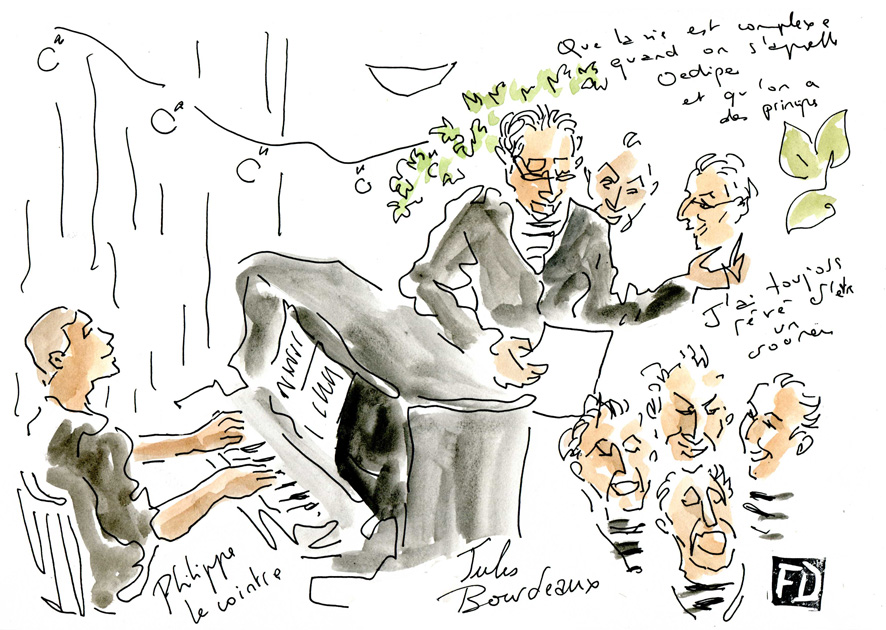 Que la vie est complexe
quand on s'appelle
Oedipe
et qu'on a
des principes
J'ai toujours
rêvé d'être
un
Philippe
le cointre
Jules
Bourdeaux
FD